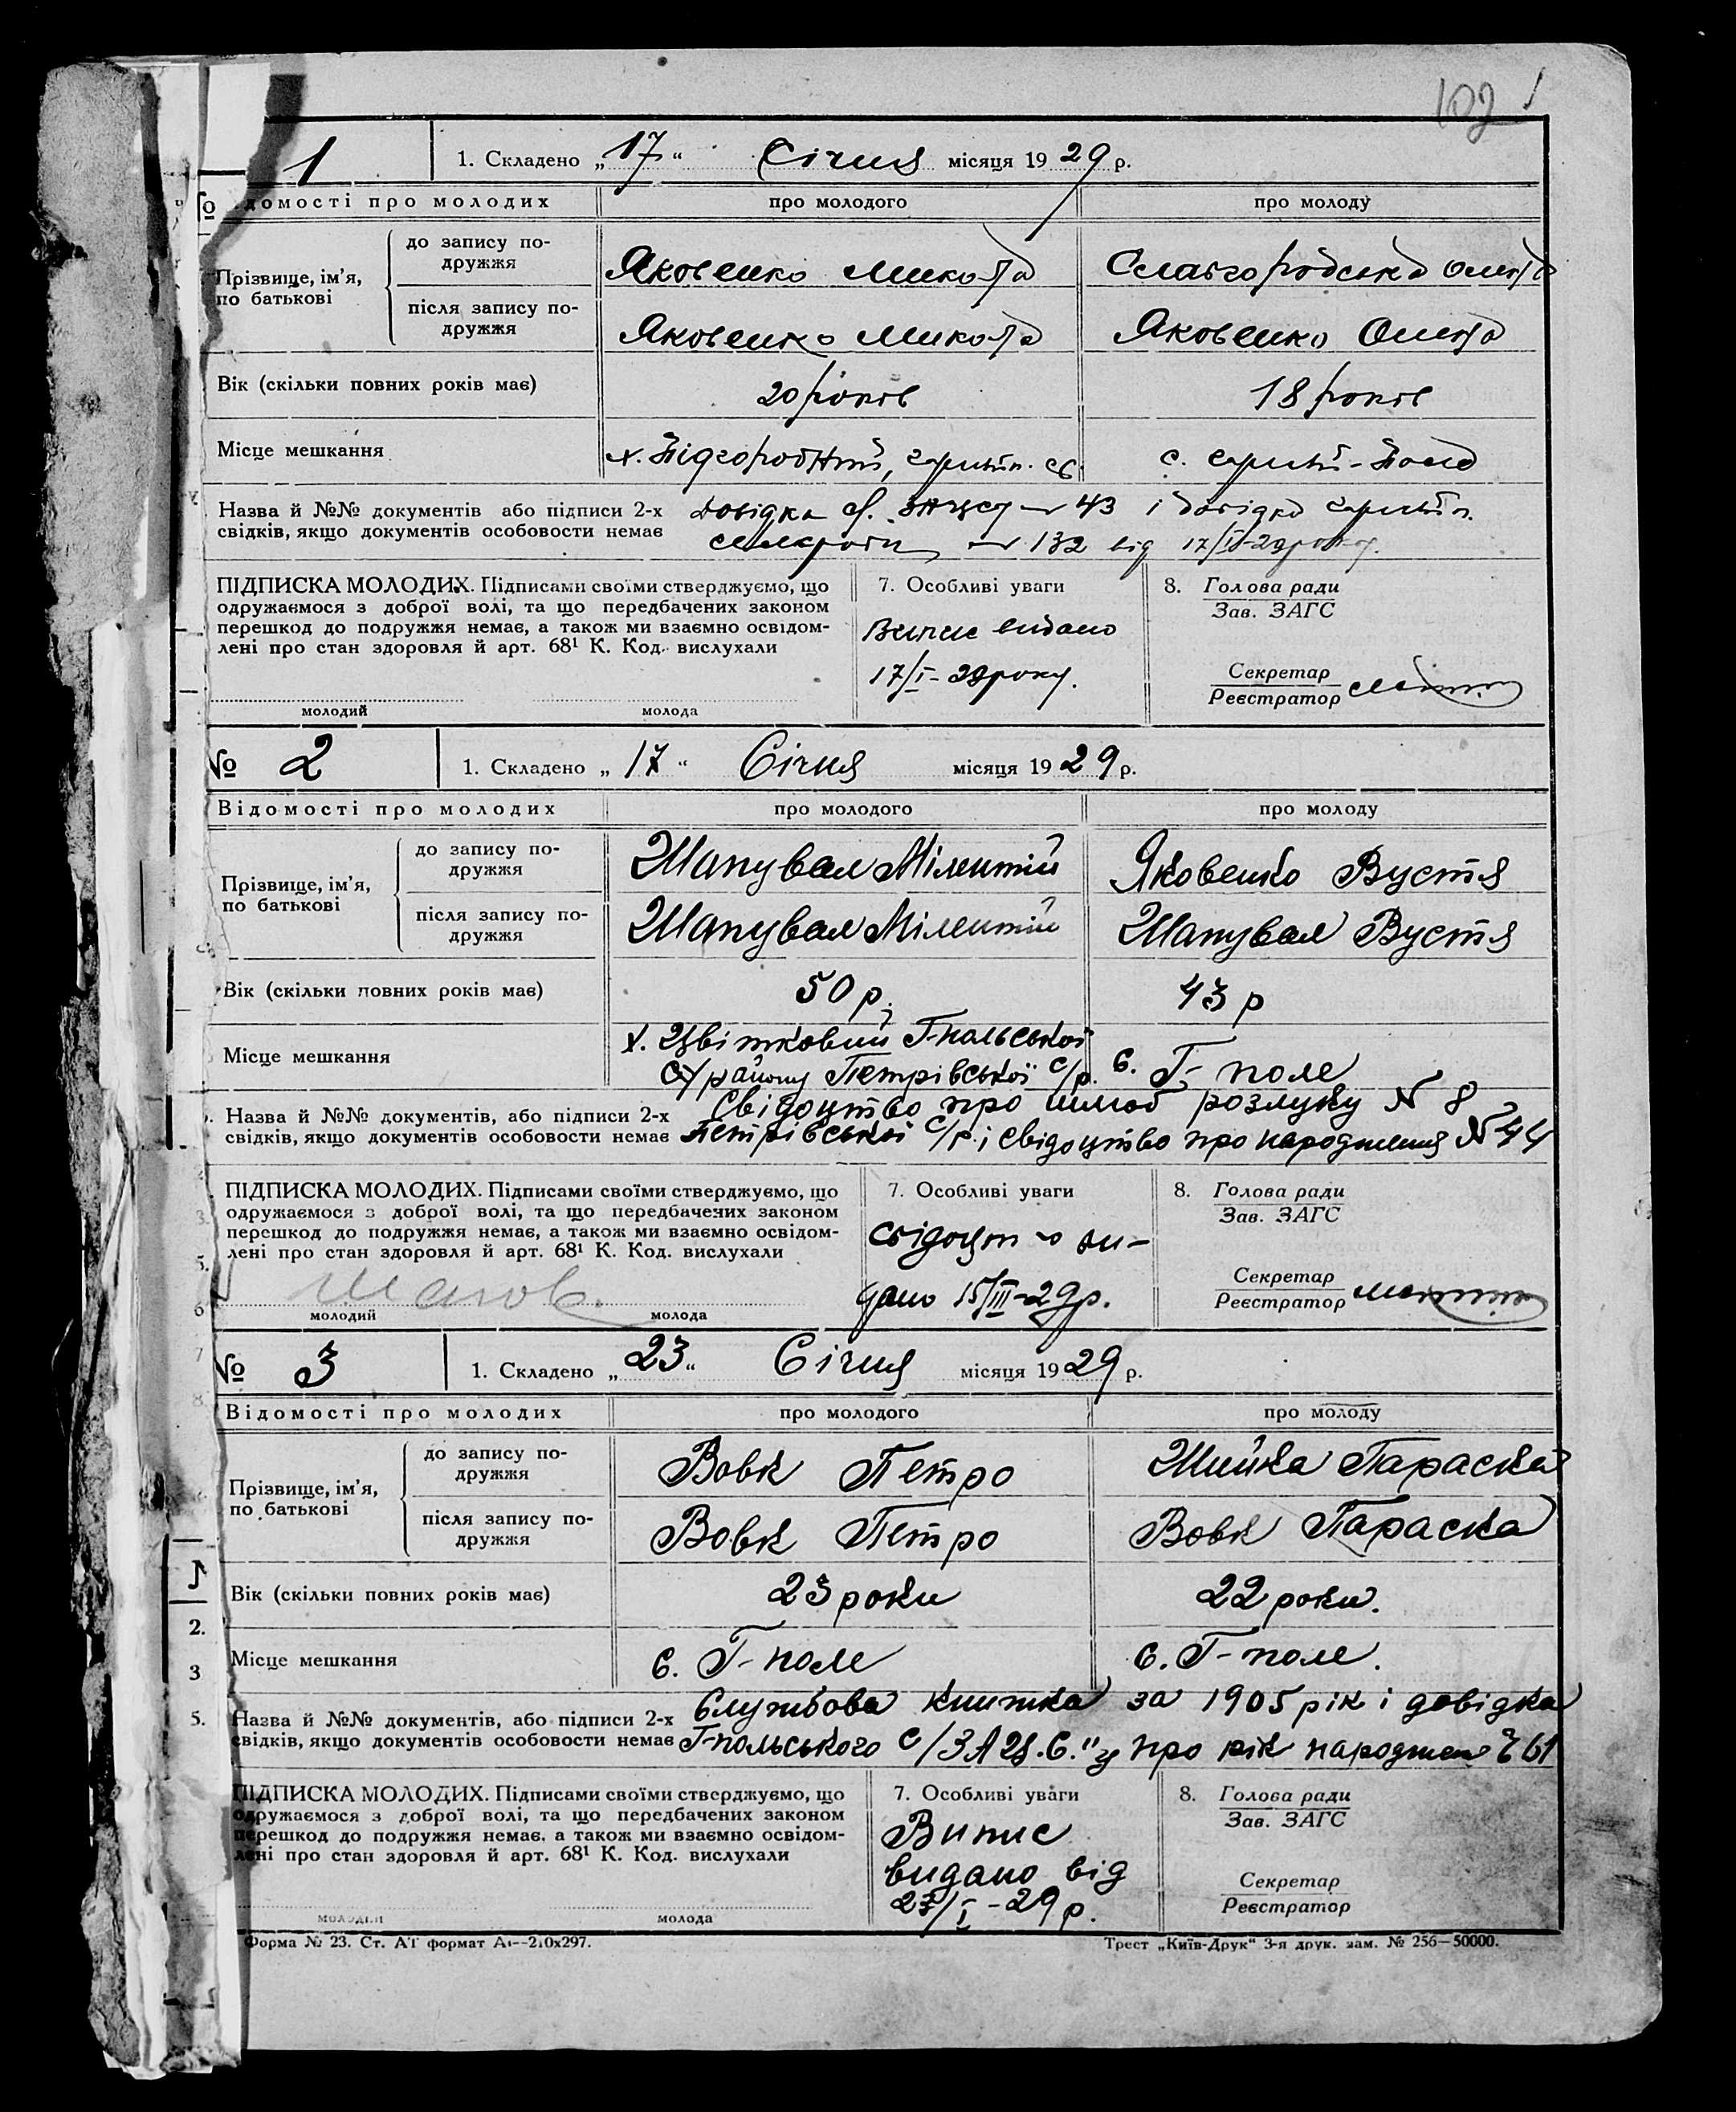 102
1
1. Складено „17“ Січня місяця 1929 р.
№
домості про молодих про молодого про молоду
Прізвище, ім’я, по батькові
до запису подружжя Яковенко Микола Славгородська Олена
після запису подружжя Яковенко Микола Яковенко Олена
Вік (скільки повних років має) 20 років 18 років
Місце мешкання х. Підгородній, с.
Назва й №№ документів або підписи 2-х Довідка 43 і довідка
свідків, якщо документів особовости немає 132 від 17/I-29 року.
ПІДПИСКА МОЛОДИХ. Підписами своїми стверджуємо, що
одружаємося з доброї волі, та що передбачених законом
перешкод до подружжя немає, а також ми взаємно освідом-
лені про стан здоровля й арт. 68¹ К. Код. вислухали
молодий молода
7. Особливі уваги
Випис видано
17/I-29 року.
8. Голова ради
Зав. ЗАГС
Секретар
Реєстратор
№ 2 1. Складено „17“ Січня місяця 1929 р.
Відомості про молодих про молодого про молоду
Прізвище, ім’я, по батькові
до запису подружжя Шапувал Мілентій Яковенко Вустя
після запису подружжя Шапувал Мілентій Шапувал Вустя
Вік (скільки повних років має) 50 р. 43 р
Місце мешкання
х. Цвітковий Г-польської
с/ району Петрівської с/р. с. Г-поле
Назва й №№ документів, або підписи 2-х Свідоцтво про шлюб розлуку N 8
свідків, якщо документів особовости немає Петрівської с/р. і свідоцтво про народження N 44
ПІДПИСКА МОЛОДИХ. Підписами своїми стверджуємо, що
одружаємося з доброї волі, та що передбачених законом
перешкод до подружжя немає, а також ми взаємно освідом-
лені про стан здоровля й арт. 68¹ К. Код. вислухали
молодий молода
7. Особливі уваги
свідоцт-о ви-
дано 15/III-29р.
8. Голова ради
Зав. ЗАГС
Секретар
Реєстратор
№ 3 1. Складено „23“ Січня місяця 1929 р.
Відомості про молодих про молодого про молоду
Прізвище, ім’я, по батькові
до запису подружжя Вовк Петро Шийка Параска
після запису подружжя Вовк Петро Вовк Параска
Вік (скільки повних років має) 23 роки 22 роки.
Місце мешкання с. Г-поле с. Г-поле.
Назва й №№ документів, або підписи 2-х Службова книжка за 1905 рік і довідка
свідків, якщо документів особовости немає Г-польського с/ЗАЦ.С."у про рік народжен 61
ПІДПИСКА МОЛОДИХ. Підписами своїми стверджуємо, що
одружаємося з доброї волі, та що передбачених законом
перешкод до подружжя немає, а також ми взаємно освідом-
лені про стан здоровля й арт. 68¹ К. Код. вислухали
молодий молода
7. Особливі уваги
Випис
видано від
23/I-29 р.
8. Голова ради
Зав. ЗАГС
Секретар
Реєстратор
Форма № 23. Ст. АТ формат А4—210х297. Трест „Київ-Друк“ 3-я друк. зам. № 256—50000.